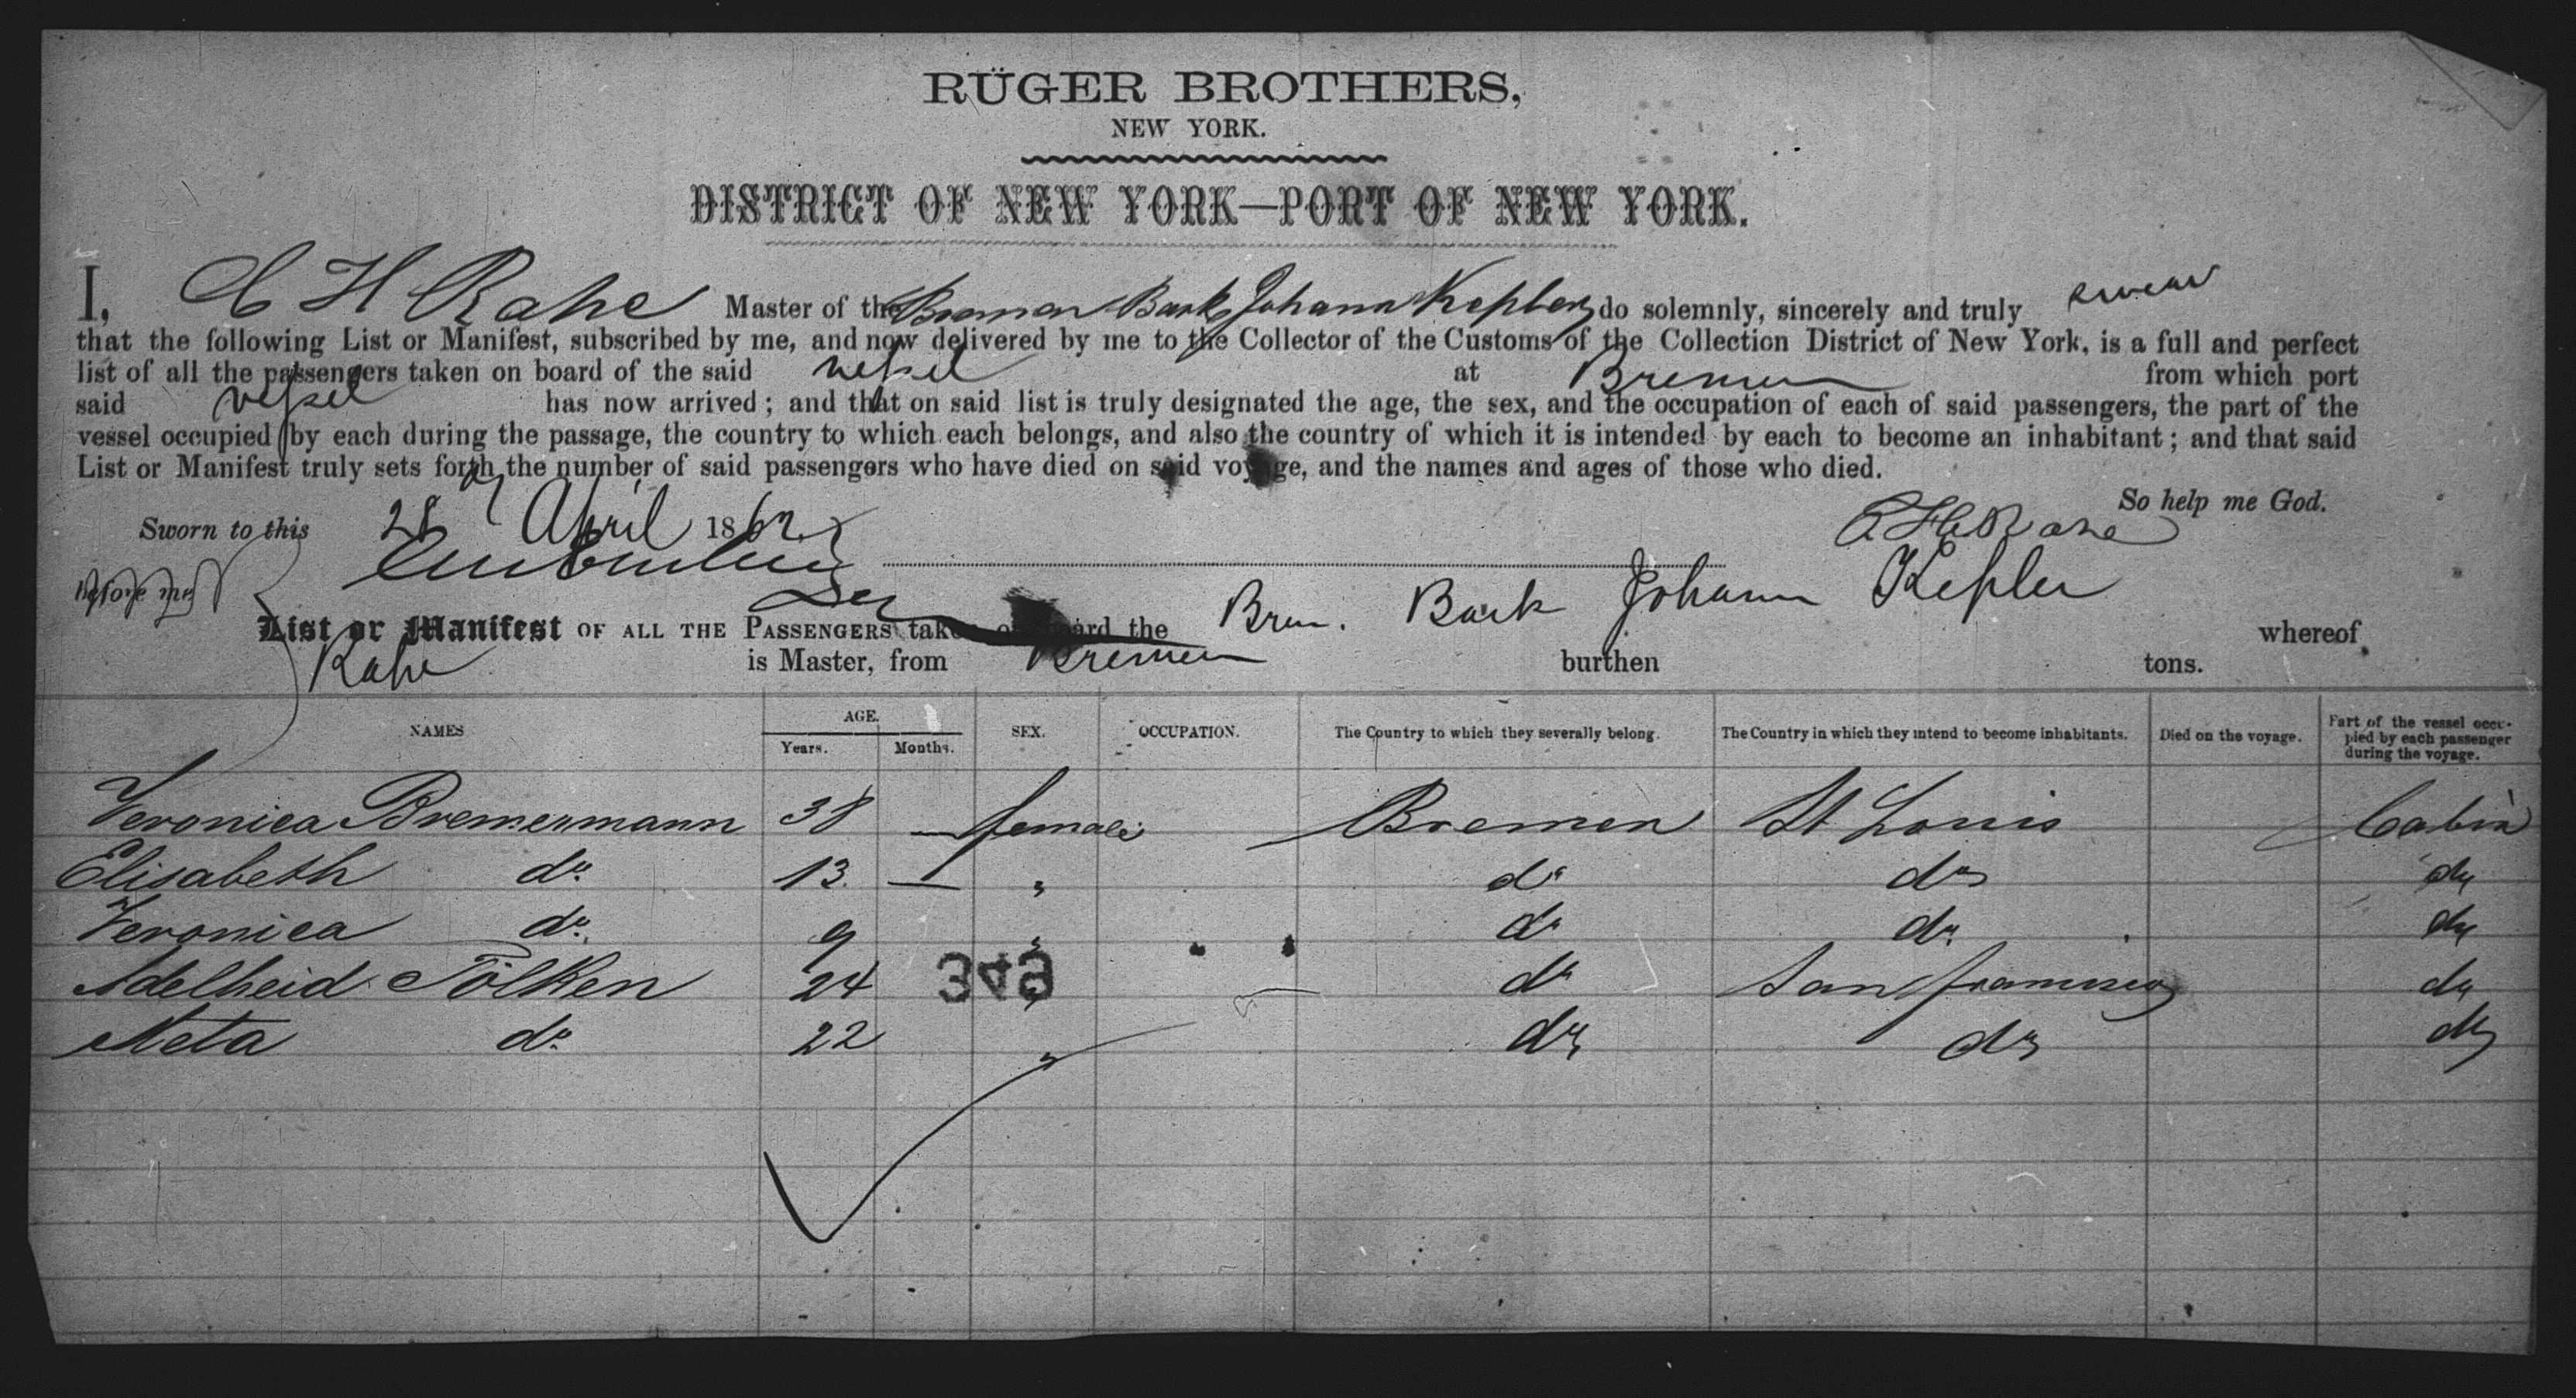 RÜGER BROTHERS,
NEW YORK.
DISTRICT OF NEW YORK—PORT OF NEW YORK.
I, C H Rahe Master of the Bremen Bark Johann Kepler do solemnly, sincerely and truly swear
that the following List or Manifest, subscribed by me, and now delivered by me to the Collector of the Customs of the Collection District of New York, is a full and perfect
list of all the passengers taken on board of the said vessel at Bremen from which port
said vessel has now arrived; and that on said list is truly designated the age, the sex, and the occupation of each of said passengers, the part of the
vessel occupied by each during the passage, the country to which each belongs, and also the country of which it is intended by each to become an inhabitant; and that said
List or Manifest truly sets forth the number of said passengers who have died on said voyage, and the names and ages of those who died.
So help me God.
Sworn to this 28 April 1862 C H Rahe
Before me
List or Manifest OF ALL THE PASSENGERS taken on board the Brem. Bark Johann Kepler whereof
Rahe is Master, from Bremen burthen tons.
NAMES AGE. Years. Months. SEX. OCCUPATION. The Country to which they severally belong. The Country in which they intend to become inhabitants. Died on the voyage. Part of the vessel occupied by each passenger during the voyage.
Veronica Bremermann 38 — female Bremen St Louis Cabin
Elisabeth do. 13. — " do do do
Veronica do. 9 " do do. do
Adelheid Tölken 24 " do San Francisco do
349
Meta do. 22 " do do do